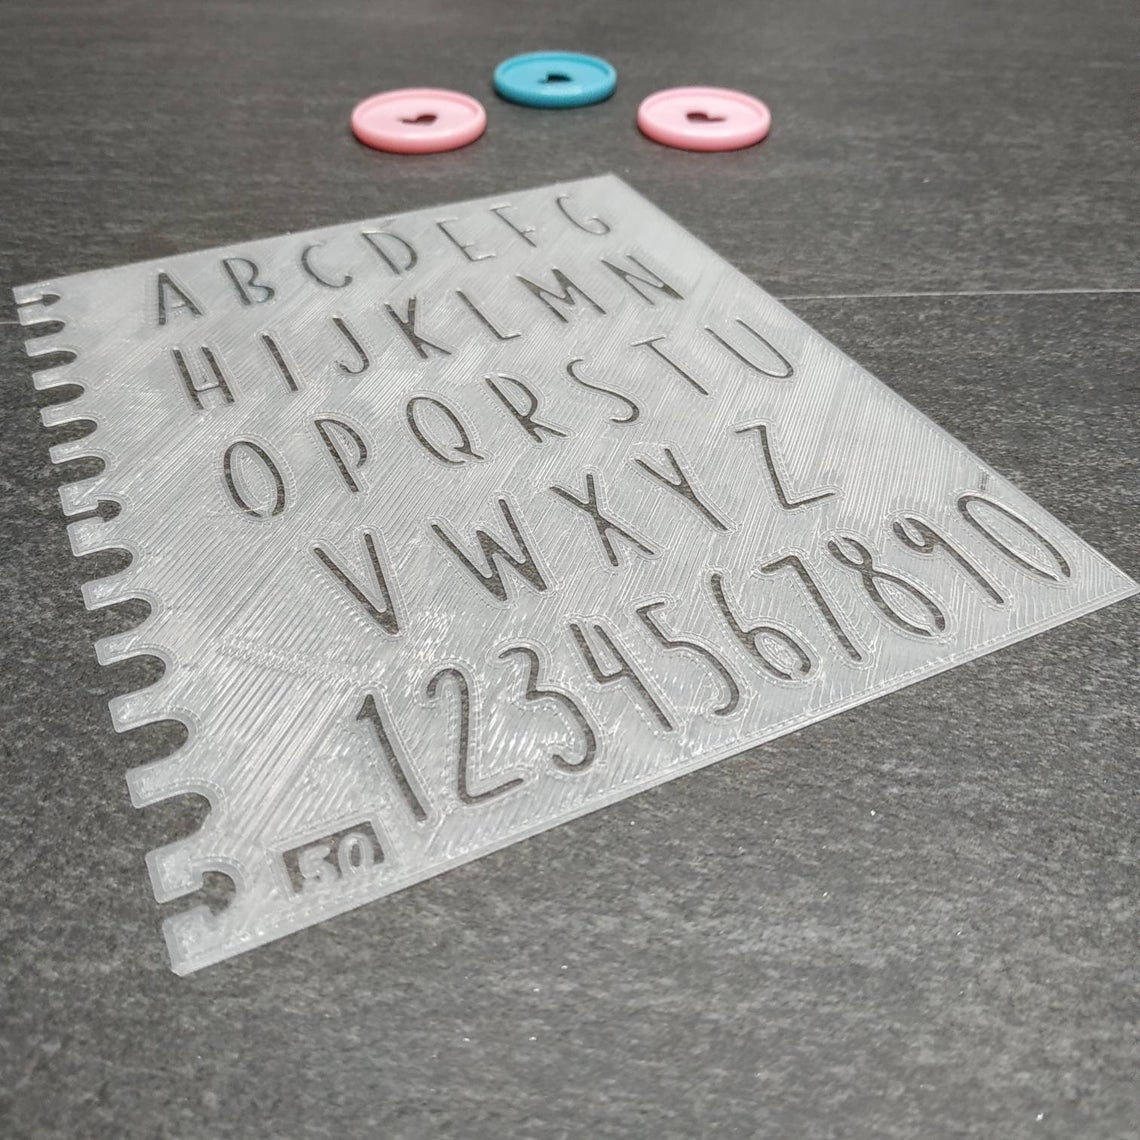 ABCDEFG
HIJKLMN
OPQRSTU
VWXYZ
1234567890
50